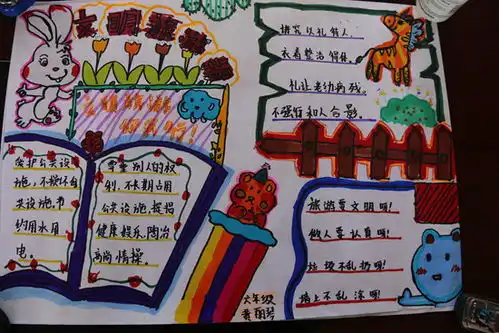 文明旅游
爱护公共设
施，不损坏公
共设施，节
约用水用
电。
尊重别人的权
利，不长期占用
公共设施，提倡
健康娱乐，陶冶
高尚情操。
讲究以礼待人，
衣着整洁得体，
礼让老幼病残，
不强行和人合影。
旅游要文明呀！
做人要认真呀！
垃圾不乱扔呀！
墙上不乱涂呀！
六年级
黄丽琴